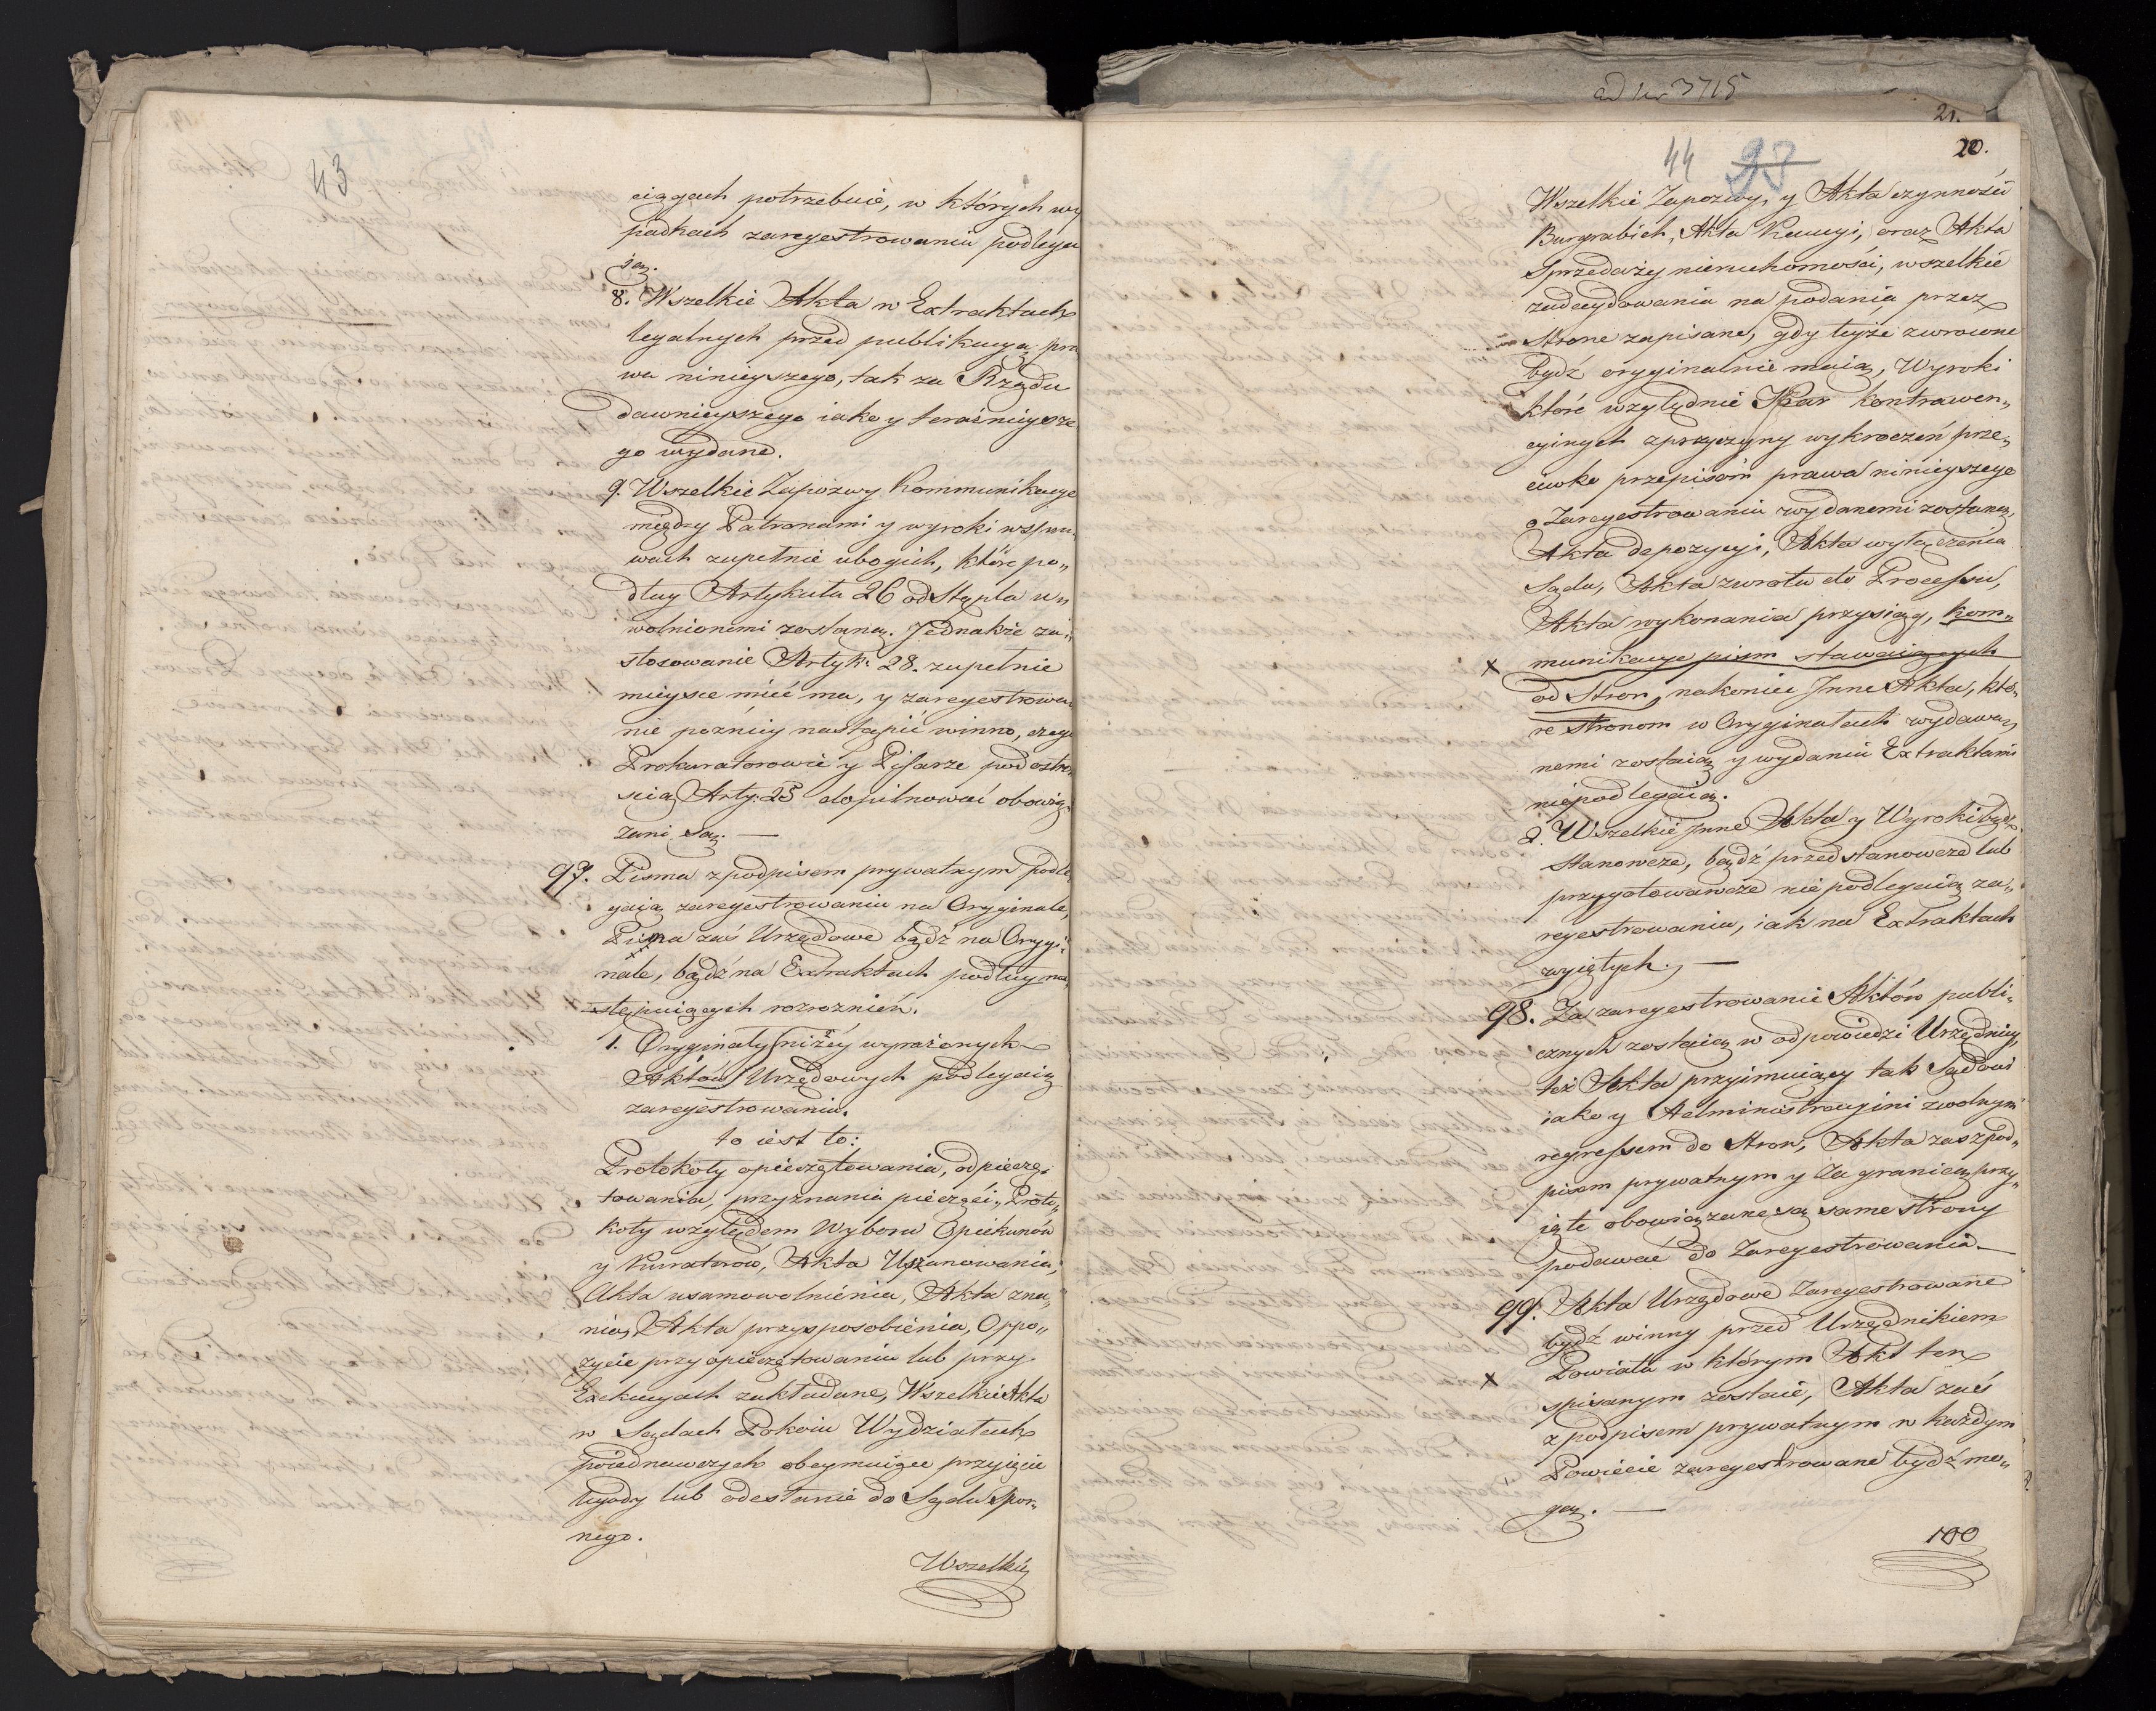 43
ciągach potrzebuie, w których wy
padkach zaregestrowaniu podlega
ią.
8. Wszelkie Akta w Extraktach
legalnych przed publikacyą pra
wa ninieyszego, tak za Rządu
dawnieyszego iako y teraśnieysze
go wydane.
9. Wszelkie Zapozwy Kommunikacye
między Patronami y wyroki w spra
wach zupełnie ubogich, które po„
dług Artykułu 26 od Stępla u„
wolnionemi zostaną. Jednakże za„
stosowanie Artyk: 28. zupełnie
mieysce mieć ma, y zaregestrowa
nie pozniey nastąpić winno, czego
Prokuratorowie y Pisarze pod ostro
scią Arty: 25 dopilnować obowią
zani są. —
97. Pisma z podpisem prywatnym podle
gaią zaregestrowaniu na Oryginale,
Pisma zaś Urzędowe bądź na Orygi„
nale, bądź na Extraktach podług na
stępuiących rozroznień.
1. Oryginały niżéy wyrażonych
Aktów Urzędowych podlegaią
zaregestrowaniu.
to iest to:
Protokoły opieczętowania, odpieczę„
towania, przyznania pieczęci„ Proto„
koły względem Wyboru Opiekunów
y Kuratorów, Akta Uszanowania,
Akta usamowolnienia, Akta zna„
nia, Akta przysposobienia, Oppo„
zycie przy opieczętowaniu lub przy
Exekucyach zakładane, Wszelkie Akta
w Sądach Pokoiu Wydziałach
poiednawczych obeymuiące przyięcie
Ugody lub odesłanie do Sądu Spor„
nego.
Wszelkie
ad Nr 3715
21.
20.
44 93
Wszelkie Zapozwy, y Akta czynności
Burgrabich, Akta Kaucyi, oraz Akta
Sprzedaży nieruchomości, wszelkie
zadecydowania na podania przez
Strone zapisane, gdy teyże zwrocone
bydź oryginalnie maią, Wyroki
które względnie Kar kontrawen„
cyinych z przyczyny wykroczeń prze„
ciwko przepisom prawa ninieyszego
o Zaregestrowaniu wydanemi zostaną,
Akta depozycyi, Akta wyłączenia
Sądu, Akta zwrotu do Processu,
Akta wykonania przysiąg, kom„
x munikacye pism stawaiących
od Stron, nakoniec Jnne Akta, któ„
re Stronom w Oryginałach wydawa„
nemi zostaią y wydaniu Extraktami
niepodlegaią.
2. Wszelkie jnne Akta y Wyroki bądź
Stanowcze, bądź przedstanowcze lub
przygotowawcze niepodlegaią za„
regestrowaniu, iak na Extraktach
wyiętych., —
98. Za zaregestrowanie Aktów publi„
cznych zostaią w odpowiedzi Urzędnicy
też Akta przyimuiący tak Sądowi
iako y Administracyini z wolnym
regressem do Stron, Akta zas z pod„
pisem prywatnym y Za granicą przy„
ięte obowiązane są same Strony
podawać do Zaregestrowania —
99. Akta Urzędowe Zaregestrowane
bydź winny przed Urzędnikiem
x Powiatu w którym Akt ten
spisanym zostaie, Akta zaś
z podpisem prywatnym w każdym
Powiecie zaregestrowane bydź mo„
gą. —
100